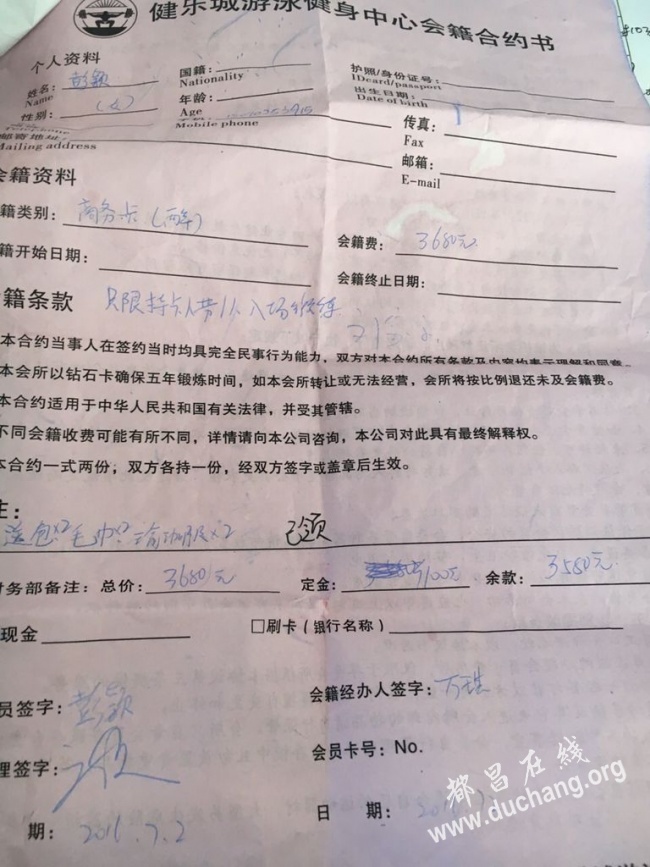 健乐城游泳健身中心会籍合约书
个人资料
姓名: 彭颖
Name
国籍:
Nationality
护照/身份证号:
IDcard/passport
性别: (女)
年龄:
Age
出生日期:
Date of birth
Mobile phone
邮寄地址:
Mailing address
传真:
Fax
邮箱:
E-mail
会籍资料
籍类别: 商务卡(两年)
会籍费: 3680元
籍开始日期:
会籍终止日期:
籍条款 只限持卡人带1人入场锻练
本合约当事人在签约当时均具完全民事行为能力，双方对本合约所有条款及内容均表示理解和同意。
本会所以钻石卡确保五年锻炼时间，如本会所转让或无法经营，会所将按比例退还未及会籍费。
本合约适用于中华人民共和国有关法律，并受其管辖。
不同会籍收费可能有所不同，详情请向本公司咨询，本公司对此具有最终解释权。
本合约一式两份，双方各持一份，经双方签字或盖章后生效。
主:
送包x2毛巾x2瑜珈服x2 已领
财务部备注: 总价: 3680元 定金: 100元 余款: 3580元
现金 □刷卡(银行名称)
员签字: 彭颖
会籍经办人签字:
理签字:
会员卡号: No.
期: 2016.7.2
日 期:
都昌在线
www.duchang.org